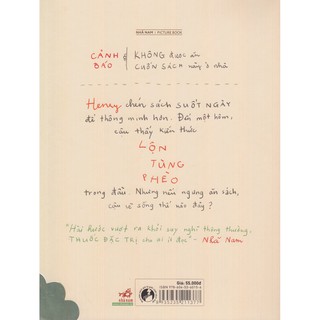 NHÃ NAM | PICTURE BOOK
CẢNH BÁO
KHÔNG được ăn
CUỐN SÁCH này ở nhà
Henry chén sách SUỐT NGÀY
để thông minh hơn. Đến một hôm,
cậu thấy kiến thức
LỘN
TÙNG
PHÈO
trong đầu. Nhưng nếu ngừng ăn sách,
cậu sẽ sống thế nào đây?
"Hài hước vượt ra khỏi suy nghĩ thông thường,
THUỐC ĐẶC TRỊ cho ai lười đọc" - Nhã Nam
Giá: 55.000đ